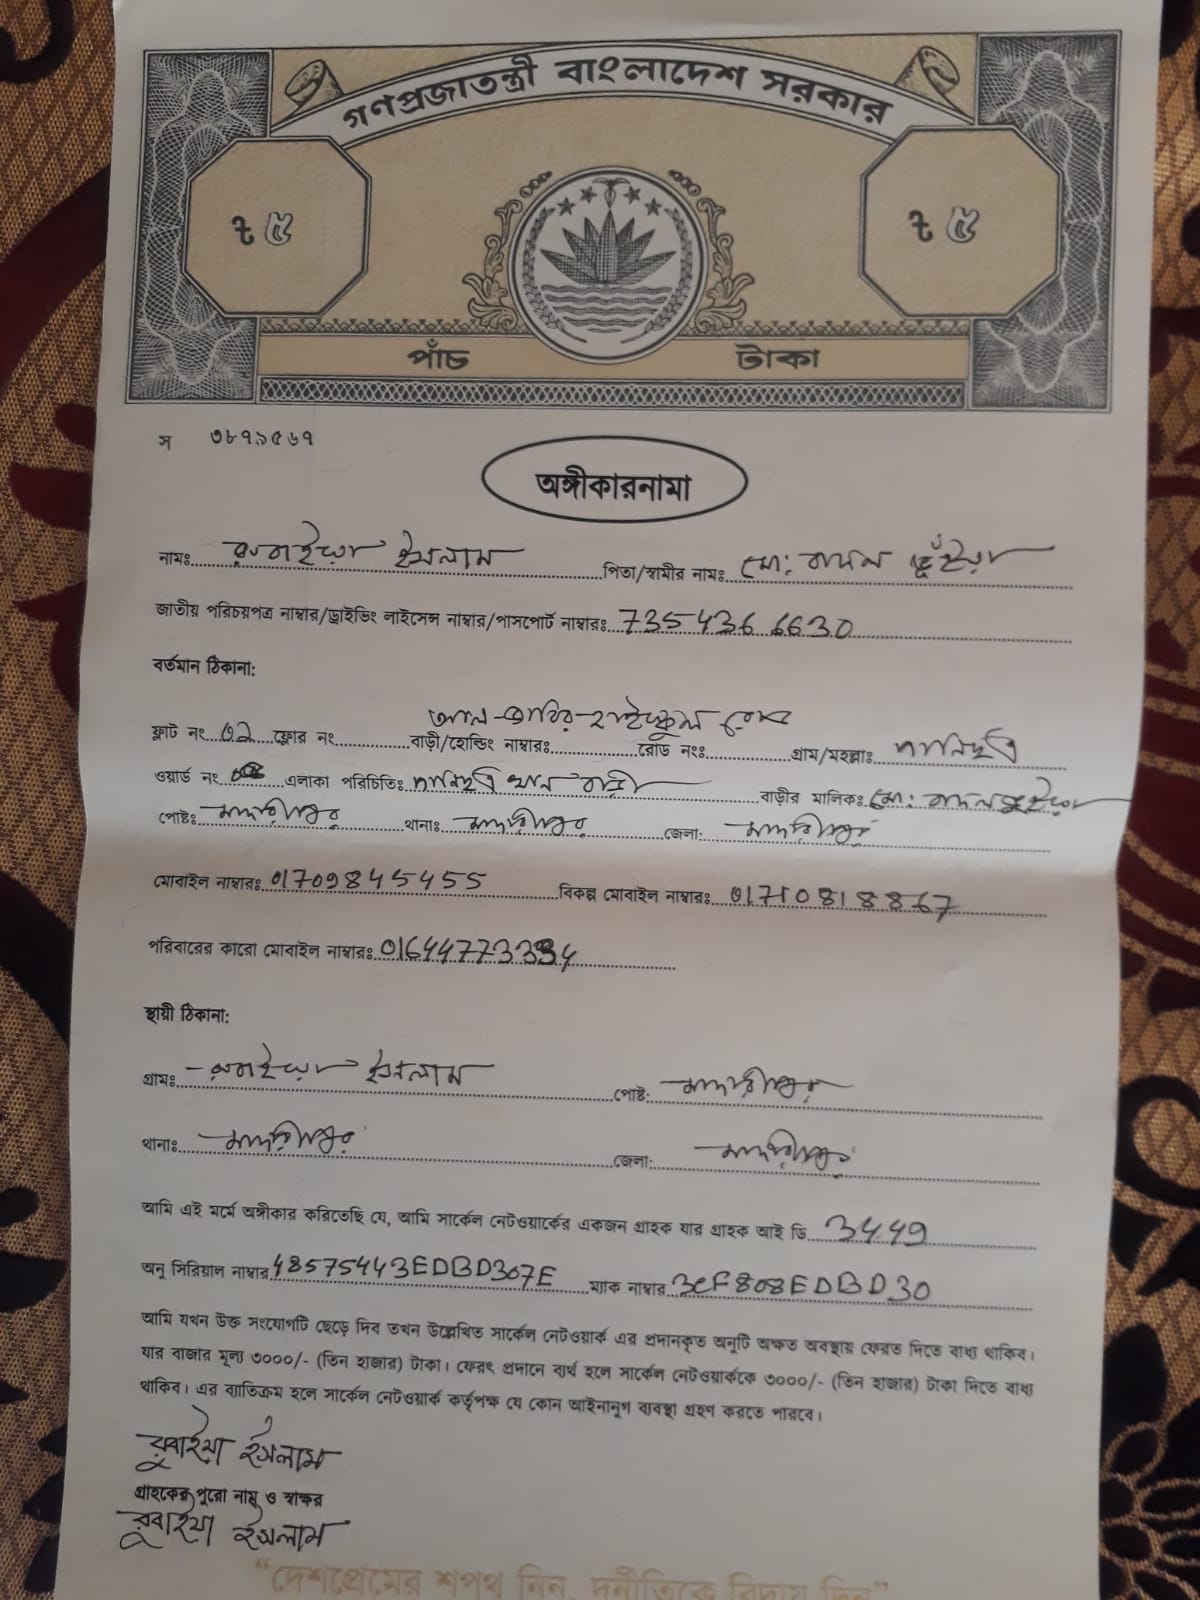 গণপ্রজাতন্ত্রী বাংলাদেশ সরকার
৳ ৫ ৳ ৫
পাঁচ টাকা
স ৩৮৭৯৫৬৭
অঙ্গীকারনামা
নামঃ রুবাইয়া ইসলাম পিতা/স্বামীর নামঃ মো: বাদল ভূঁইয়া
জাতীয় পরিচয়পত্র নাম্বার/ড্রাইভিং লাইসেন্স নাম্বার/পাসপোর্ট নাম্বারঃ 7354366630
বর্তমান ঠিকানা:
হাইস্কুল রোড
ফ্লাট নং ফ্লোর নং বাড়ী/হোল্ডিং নাম্বারঃ রোড নংঃ গ্রাম/মহল্লাঃ
ওয়ার্ড নং এলাকা পরিচিতিঃ খান বাড়ী বাড়ীর মালিকঃ মো: বাদল ভূঁইয়া
পোষ্টঃ মাদারীপুর থানাঃ মাদারীপুর জেলা: মাদারীপুর
মোবাইল নাম্বারঃ 01709845455 বিকল্প মোবাইল নাম্বারঃ 01710818867
পরিবারের কারো মোবাইল নাম্বারঃ
স্থায়ী ঠিকানা:
গ্রামঃ রুবাইয়া ইসলাম পোষ্ট: মাদারীপুর
থানাঃ মাদারীপুর জেলা: মাদারীপুর
আমি এই মর্মে অঙ্গীকার করিতেছি যে, আমি সার্কেল নেটওয়ার্কের একজন গ্রাহক যার গ্রাহক আই ডি 3449
অনু সিরিয়াল নাম্বার 48575443EDBD307E ম্যাক নাম্বার 3CF808EDBD30
আমি যখন উক্ত সংযোগটি ছেড়ে দিব তখন উল্লেখিত সার্কেল নেটওয়ার্ক এর প্রদানকৃত অনুটি অক্ষত অবস্থায় ফেরত দিতে বাধ্য থাকিব।
যার বাজার মূল্য ৩০০০/- (তিন হাজার) টাকা। ফেরৎ প্রদানে ব্যর্থ হলে সার্কেল নেটওয়ার্ককে ৩০০০/- (তিন হাজার) টাকা দিতে বাধ্য
থাকিব। এর ব্যতিক্রম হলে সার্কেল নেটওয়ার্ক কর্তৃপক্ষ যে কোন আইনানুগ ব্যবস্থা গ্রহণ করতে পারবে।
রুবাইয়া ইসলাম
গ্রাহকের পুরো নাম ও স্বাক্ষর
রুবাইয়া ইসলাম
“দেশপ্রেমের শপথ নিন, দুর্নীতিকে বিদায় দিন”